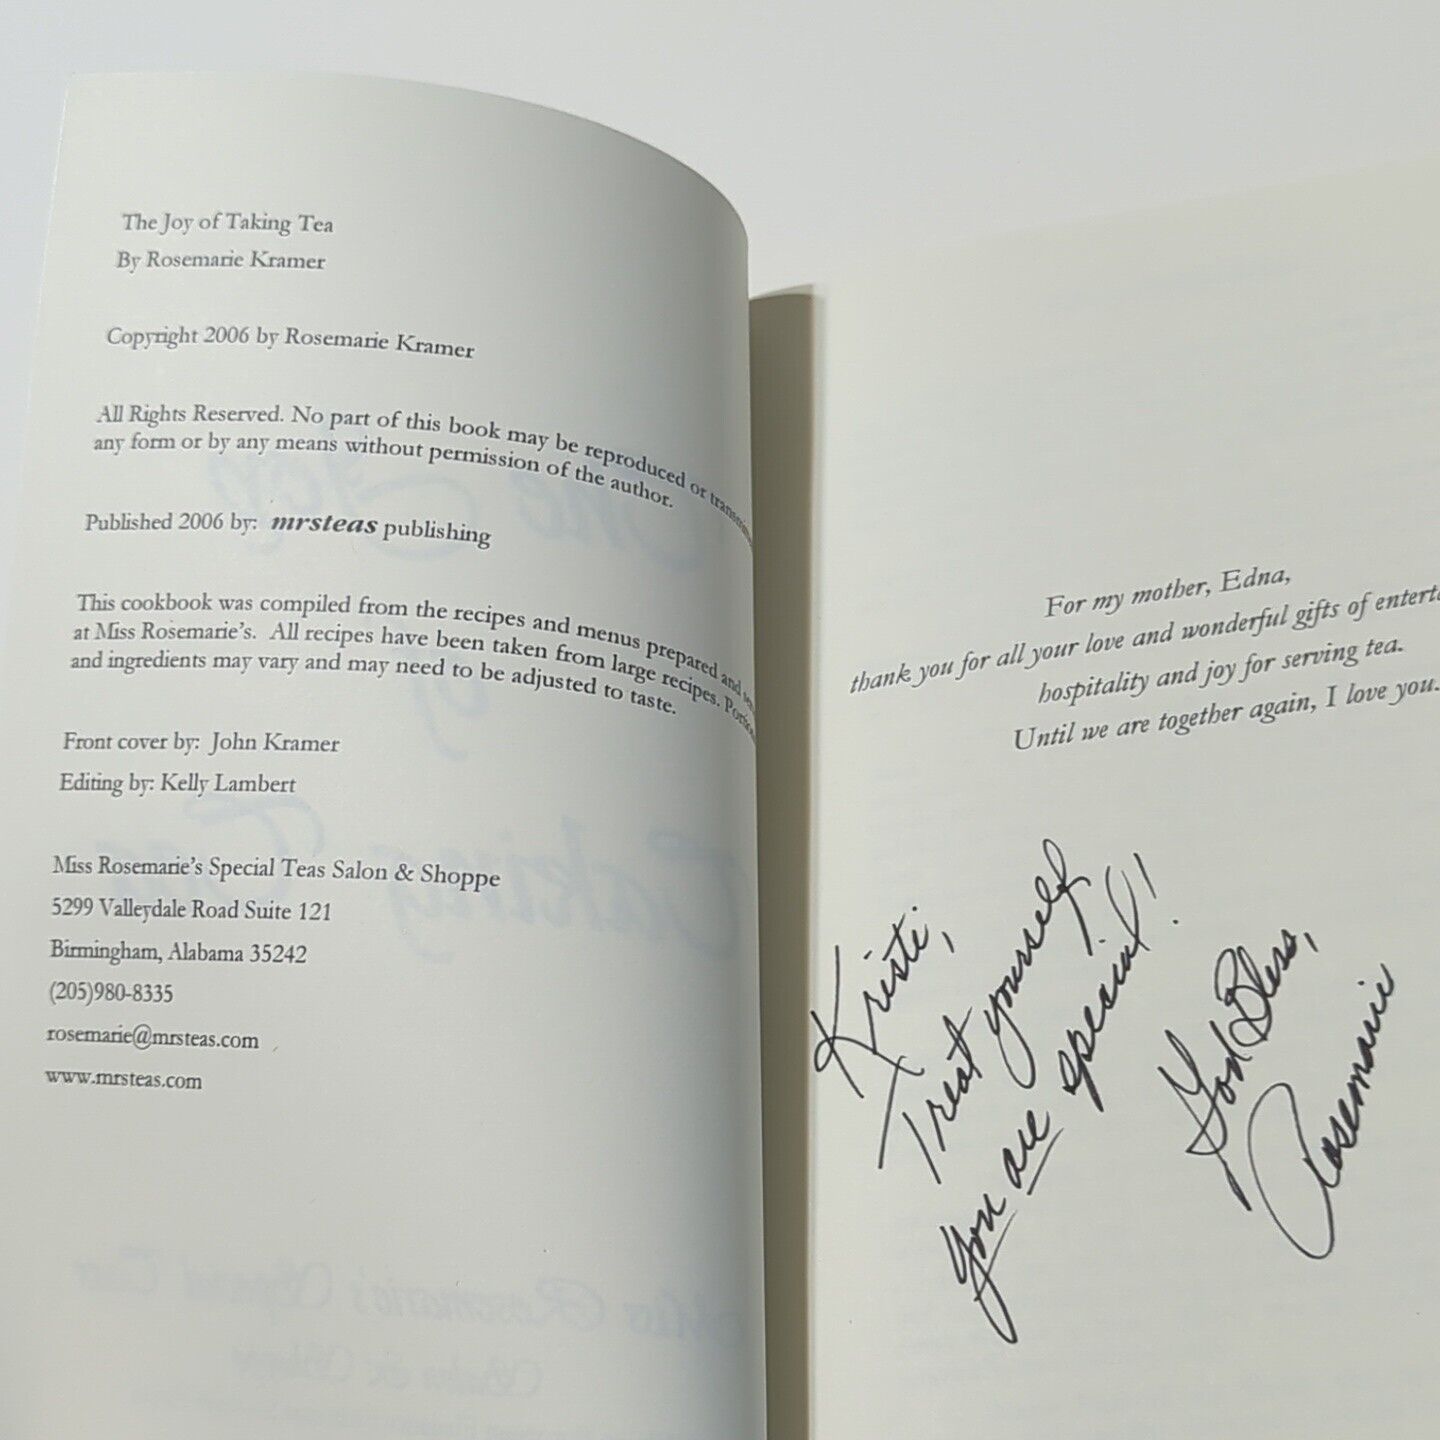 The Joy of Taking Tea
By Rosemarie Kramer
Copyright 2006 by Rosemarie Kramer
All Rights Reserved. No part of this book may be reproduced or
any form or by any means without permission of the author.
Published 2006 by: mrsteas publishing
This cookbook was compiled from the recipes and menus prepared and
at Miss Rosemarie's. All recipes have been taken from large recipes.
and ingredients may vary and may need to be adjusted to taste.
Front cover by: John Kramer
Editing by: Kelly Lambert
Miss Rosemarie's Special Teas Salon & Shoppe
5299 Valleydale Road Suite 121
Birmingham, Alabama 35242
(205)980-8335
rosemarie@mrsteas.com
www.mrsteas.com
For my mother, Edna,
thank you for all your love and wonderful gifts of
hospitality and joy for serving tea.
Until we are together again, I love you.
Kristi,
Treat yourself
you are special!
God Bless,
Rosemarie